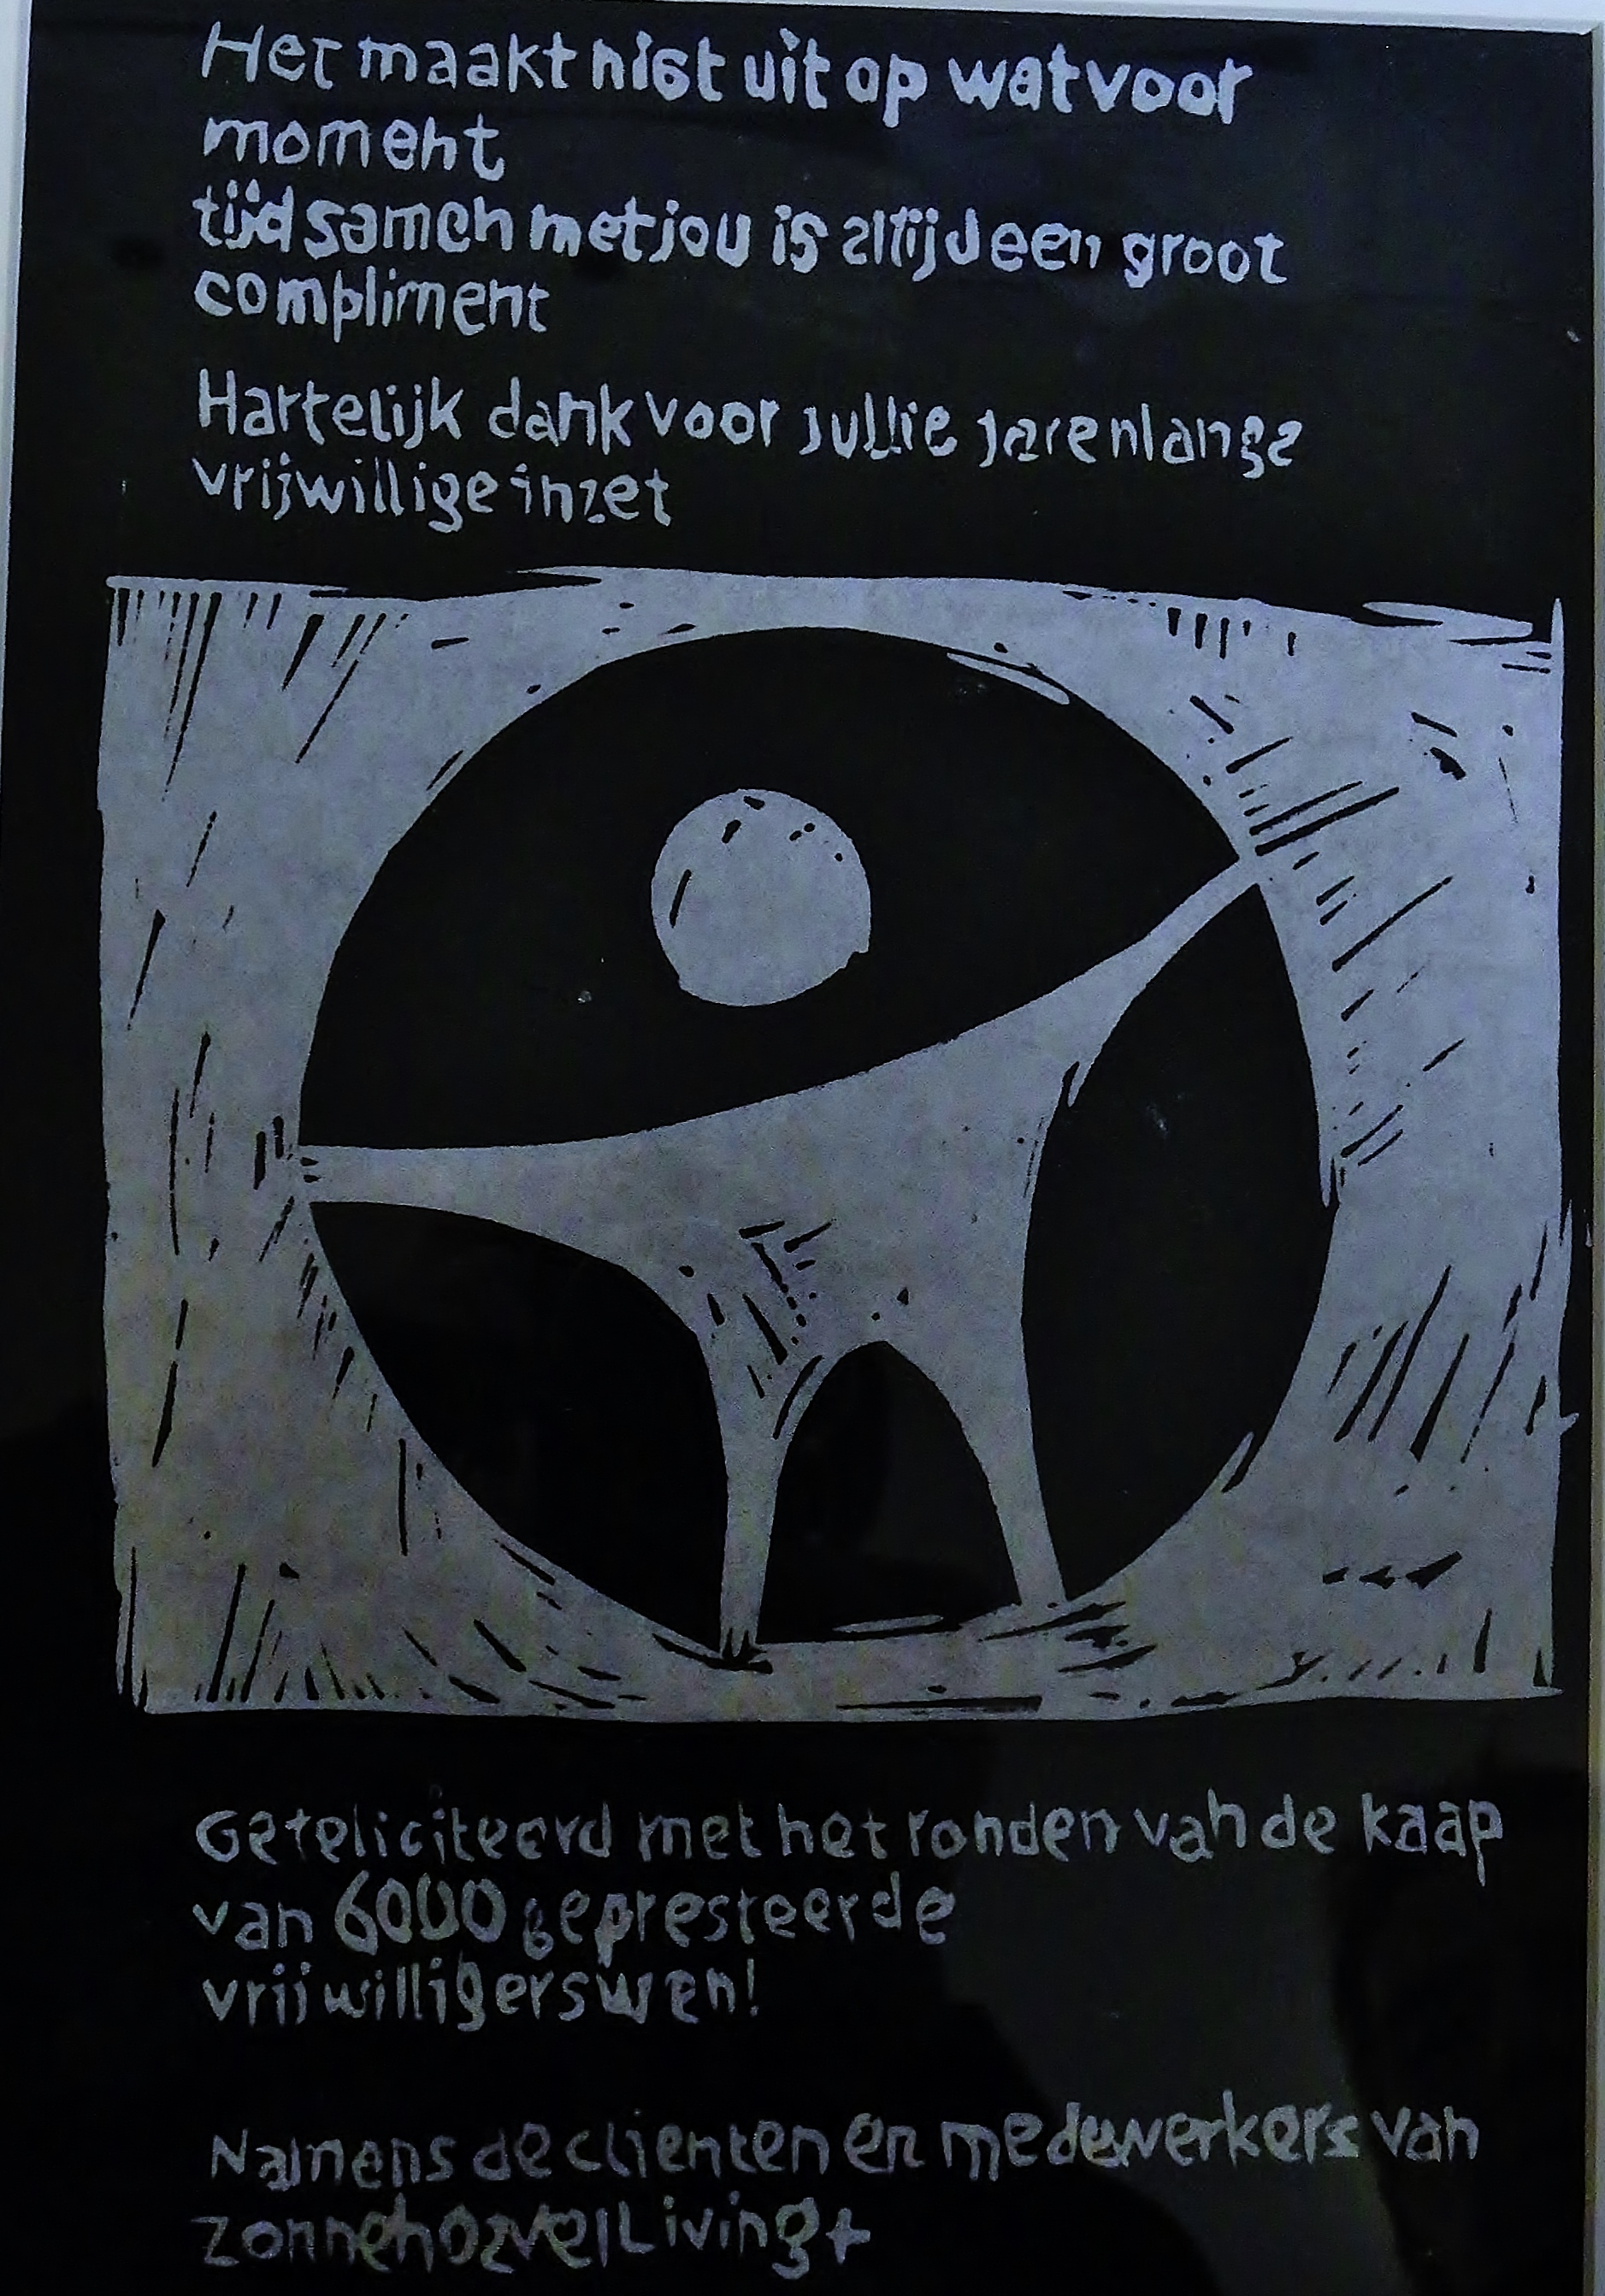 Het maakt niet uit op wat voor
moment
tijd samen met jou is altijd een groot
compliment
Hartelijk dank voor jullie jarenlange
vrijwillige inzet
Gefeliciteerd met het ronden van de kaap
van 6000 gepresteerde
vrijwilligersuren!
Namens de clienten en medewerkers van
zonnehoeve Living+